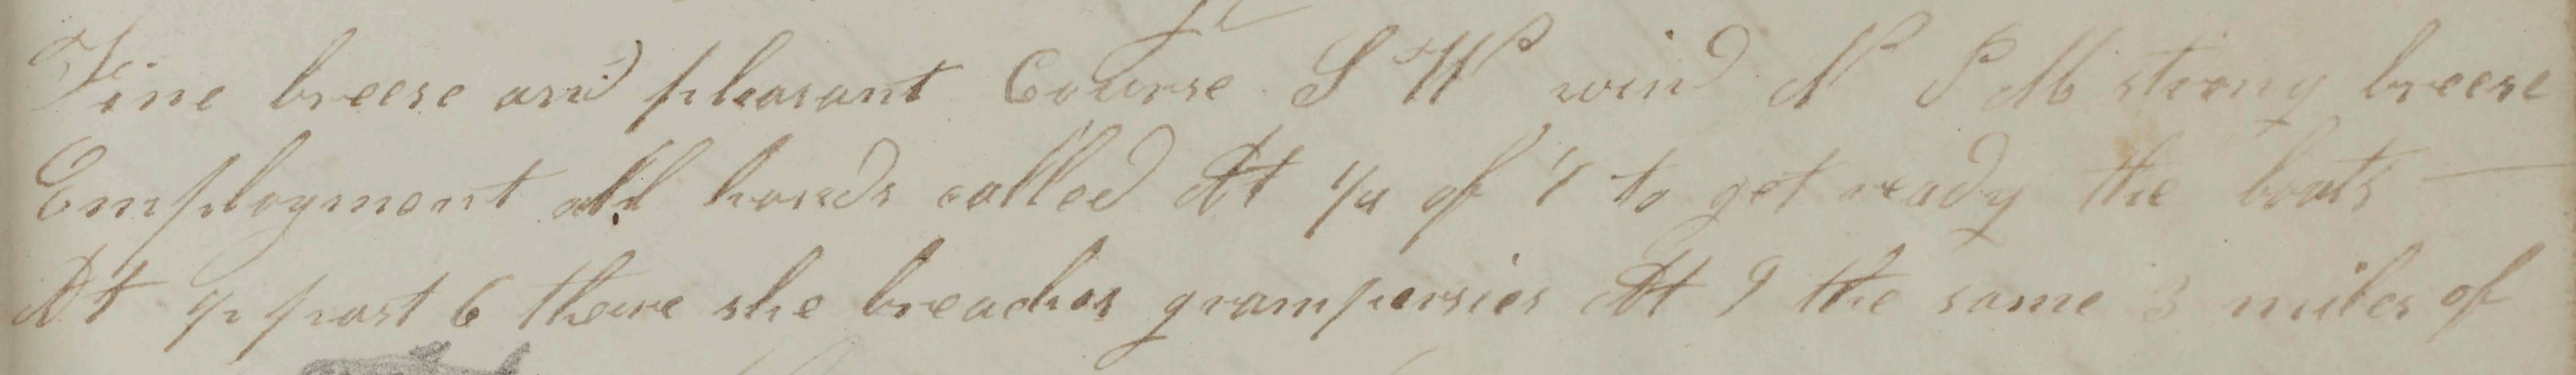 Fine breese and pleasant Course S W wind N P M strong breese
Employment all hands called At 1/4 of 7 to get ready the boats
At 1/2 past 6 there she breaches grampersies At 9 the same 3 miles of